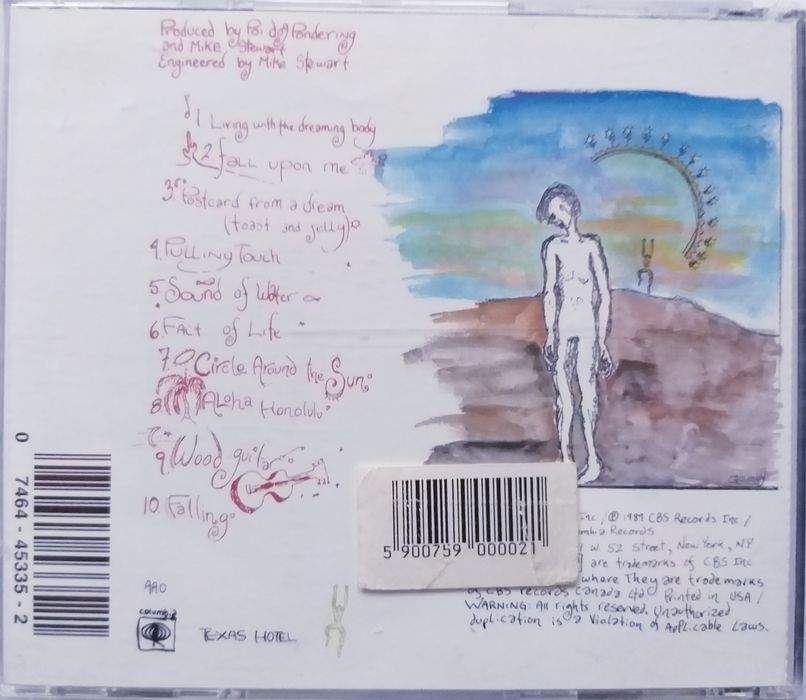 Produced by Poi dog Pondering
and Mike Stewart
Engineered by Mike Stewart
1 Living with the dreaming body
2 fall upon me
3. Postcard from a dream
(toast and jelly)
4. Pulling Touch
5. Sound of Water
6. Fact of Life
7. Circle Around the Sun
8 Aloha Honolulu
9. Wood guitar
10. Falling
0 7464-45335-2
5 900759 000021
Inc / ℗ 1989 CBS Records Inc /
Records
W. 52 Street, New York, NY
are trademarks of CBS Inc
where They are trademarks
of CBS records Canada Ltd Printed in USA /
WARNING: All rights reserved. Unauthorized
duplication is a Violation of Applicable Laws.
AAO
columbia
TEXAS HOTEL